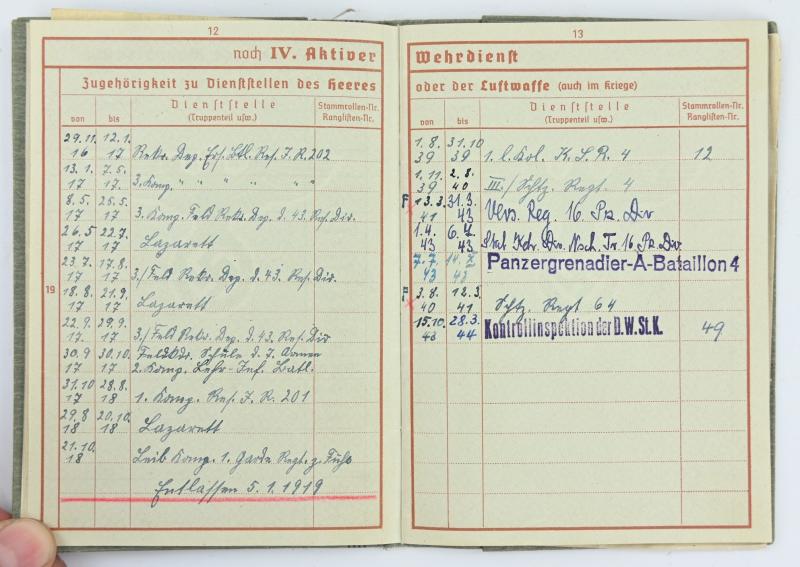 12
noch IV. Aktiver
Zugehörigkeit zu Dienststellen des Heeres
von bis Dienststelle (Truppenteil usw.) Stammrollen-Nr. Ranglisten-Nr.
19
29.11. 16 12.1. 17 Rekr. Dep. Ers. Btl. Res. I.R. 202
13.1. 17 7.5. 17 3. Komp. " " " " " "
8.5. 17 25.5. 17 3. Komp. Feld Rekr. Dep. d. 43. Res. Div.
26.5 17 22.7. 17 Lazarett
23.7. 17 17.8. 17 3./Feld Rekr. Dep. d. 43. Res. Div.
18.8. 17 21.9. 17 Lazarett
22.9. 17. 29.9. 17 3./Feld Rekr. Dep. d. 43. Res. Div
30.9 17 30.10. 17 Schule d. 7. Armee
2. Komp. Lehr-Inf. Batl.
31.10 17 28.8. 18 1. Komp. Res. I.R. 201
29.8 18 20.10. 18 Lazarett
21.10. 18 Leib Komp. 1. Garde Regt. z. Fuß
Entlassen 5.1.1919
13
Wehrdienst
oder der Luftwaffe (auch im Kriege)
von bis Dienststelle (Truppenteil usw.) Stammrollen-Nr. Ranglisten-Nr.
1.8. 39 31.10 39 1. l. Kol. 4 12
1.11. 39 2.8. 40 III./Schtz. Regt. 4
F 13.3. 41 31.3. 43 Vers. Reg. 16 Pz. Div
1.4. 43 6.7. 43 Stab Kdr. Div. Nsch. Tr. 16 Pz. Div.
7.7. 43 14. 43 Panzergrenadier-A-Bataillon 4
F 3.8. 40 12.3. 41 Schtz. Regt 64
15.10. 43 28.3. 44 Kontrollinspektion der D.W.St.K. 49